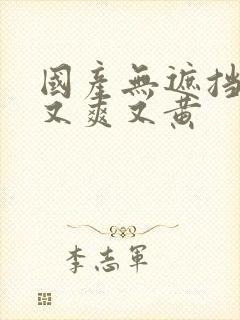 國產無遮挡
又爽又黄
李志軍